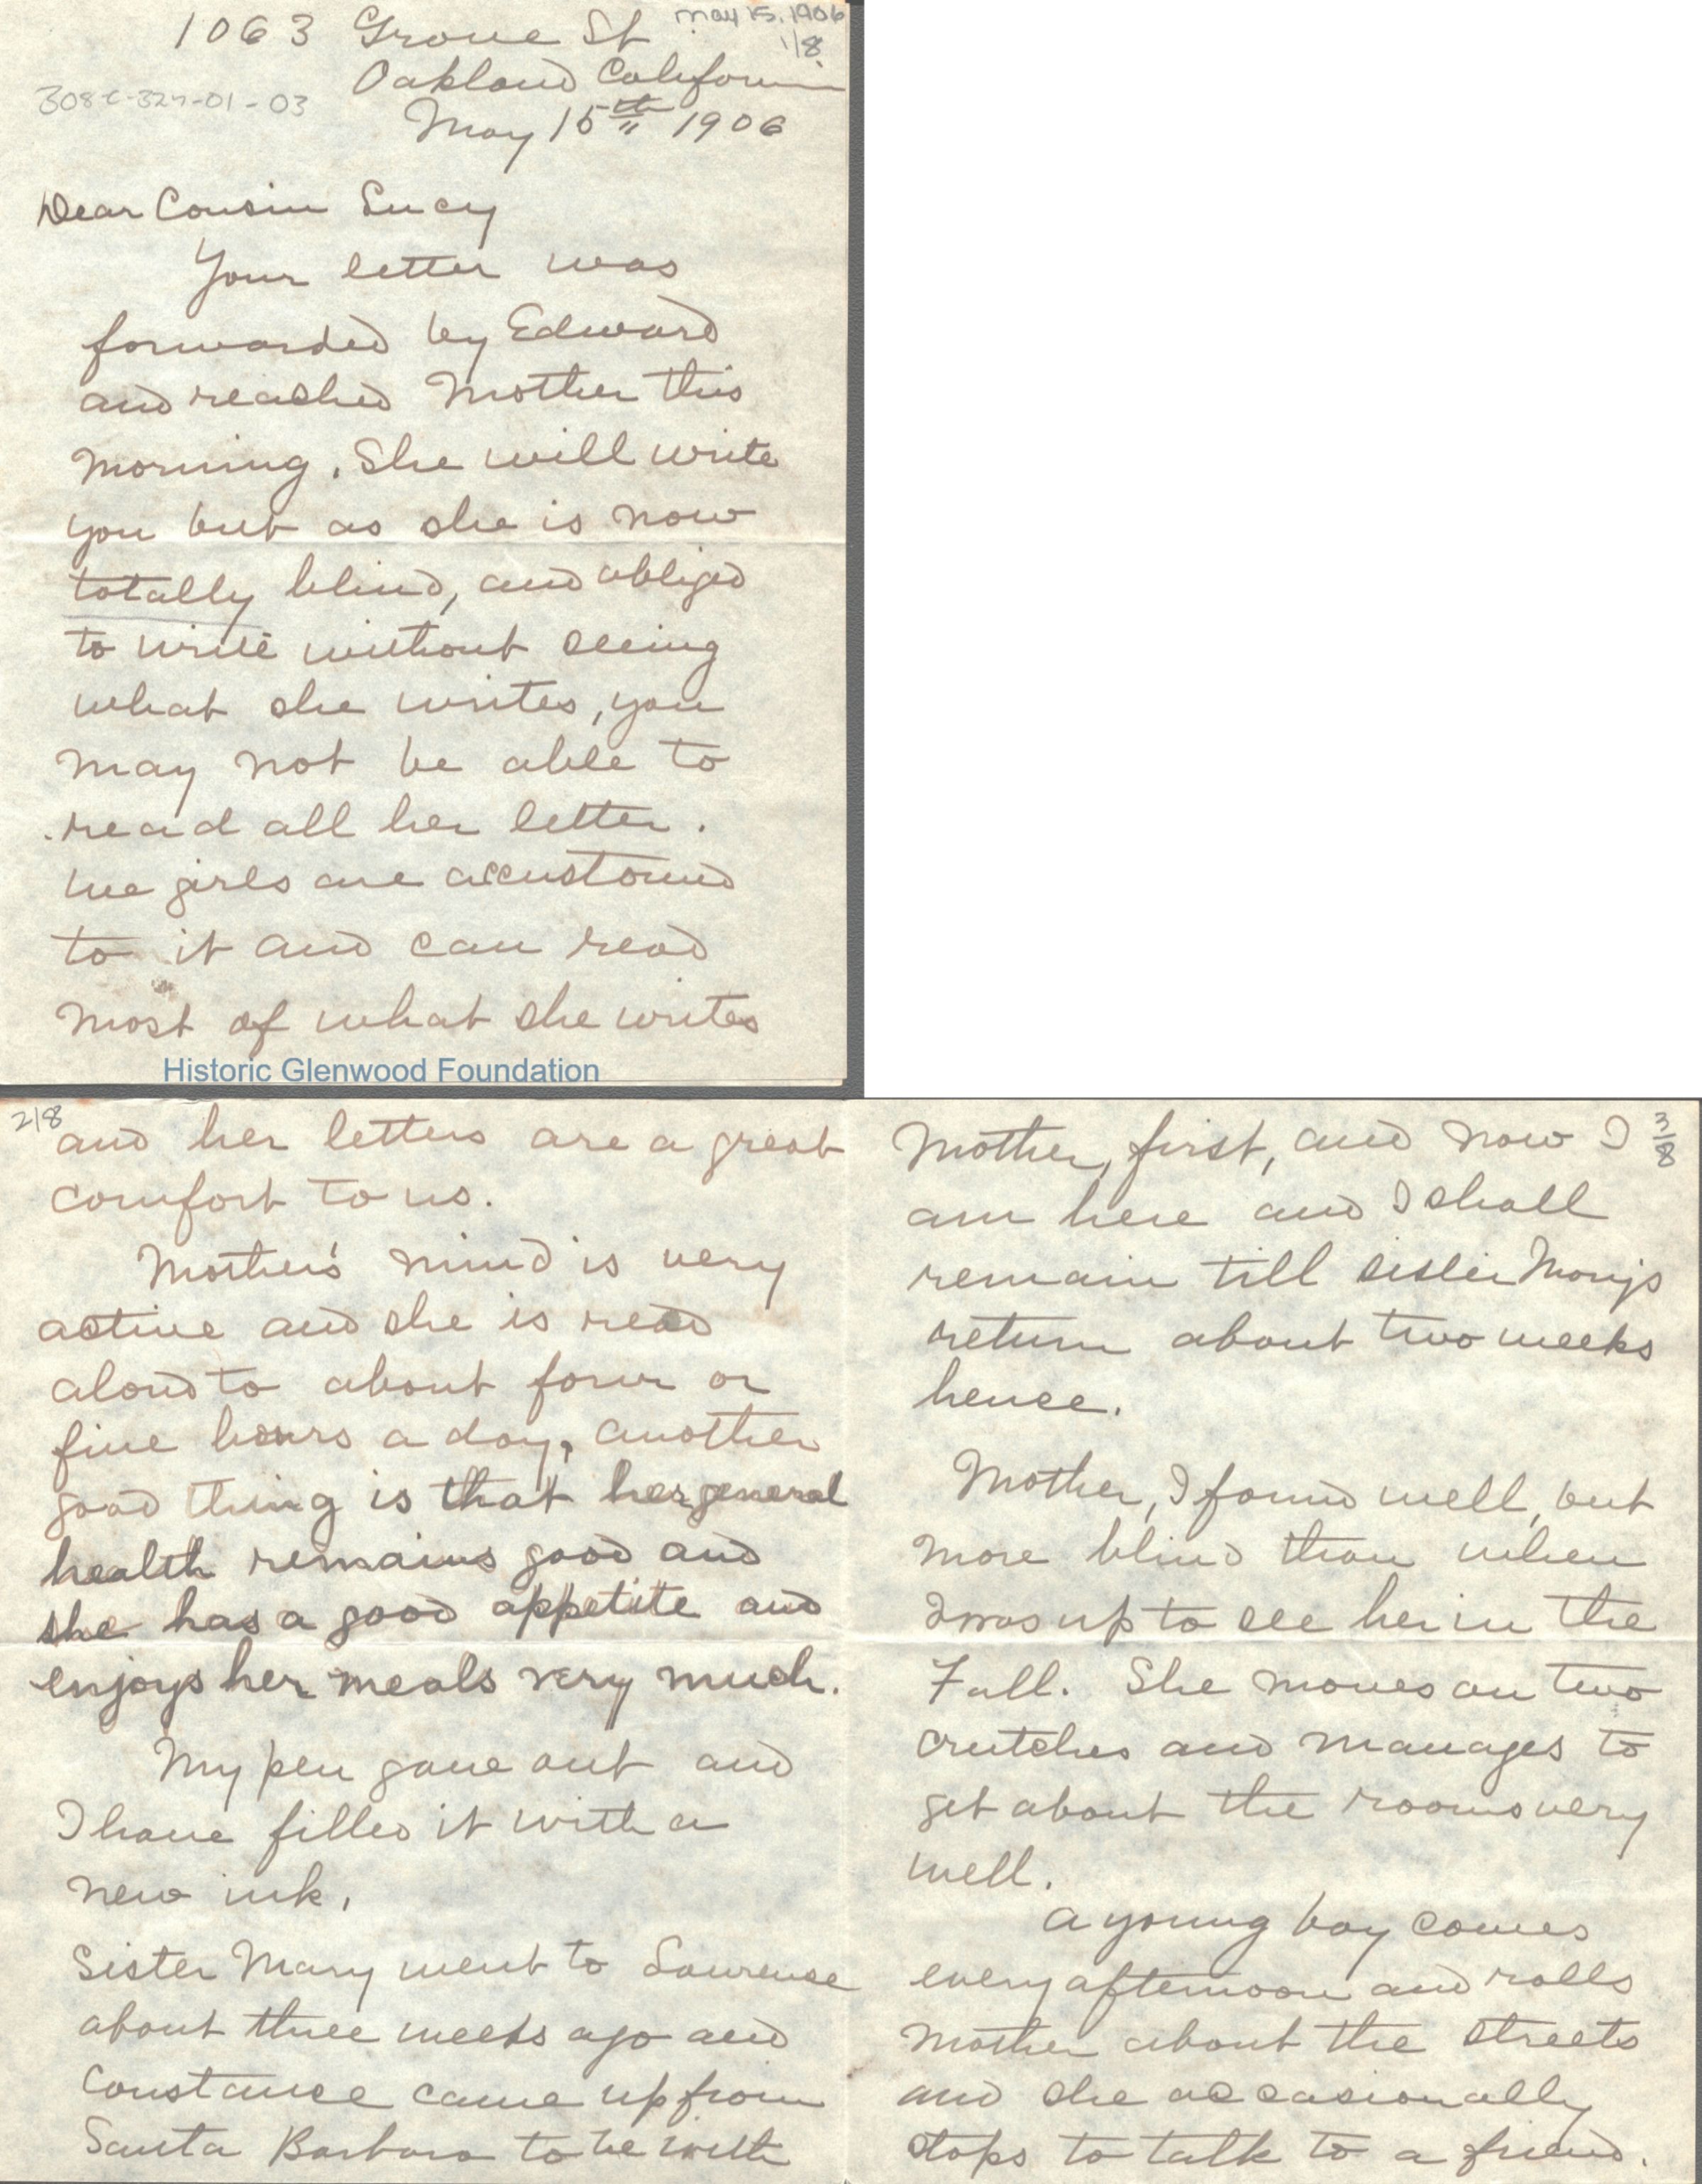 may 15, 1906
1/8
1063 Grove St
Oakland California
308c-324-01-03
May 15th 1906
Dear Cousin Lucy
Your letter was
forwarded by Edward
and reached Mother this
morning. She will write
you but as she is now
totally blind, and obliged
to write without seeing
what she writes, you
may not be able to
read all her letter.
We girls are accustomed
to it and can read
most of what she writes
Historic Glenwood Foundation
2/8
and her letters are a great
comfort to us.
Mother's mind is very
active and she is read
aloud to about four or
five hours a day, another
good thing is that her general
health remains good and
she has a good appetite and
enjoys her meals very much.
My pen gave out and
I have filled it with a
new ink.
Sister Mary went to Lawrence
about three weeks ago and
Constance came up from
Santa Barbara to be with
3/8
Mother, first, and now I
am here and I shall
remain till sister Mary's
return about two weeks
hence.
Mother, I found well, but
more blind than when
I was up to see her in the
Fall. She moves on two
crutches and manages to
get about the rooms very
well.
A young boy comes
every afternoon and rolls
Mother about the streets
and she occasionally
stops to talk to a friend.